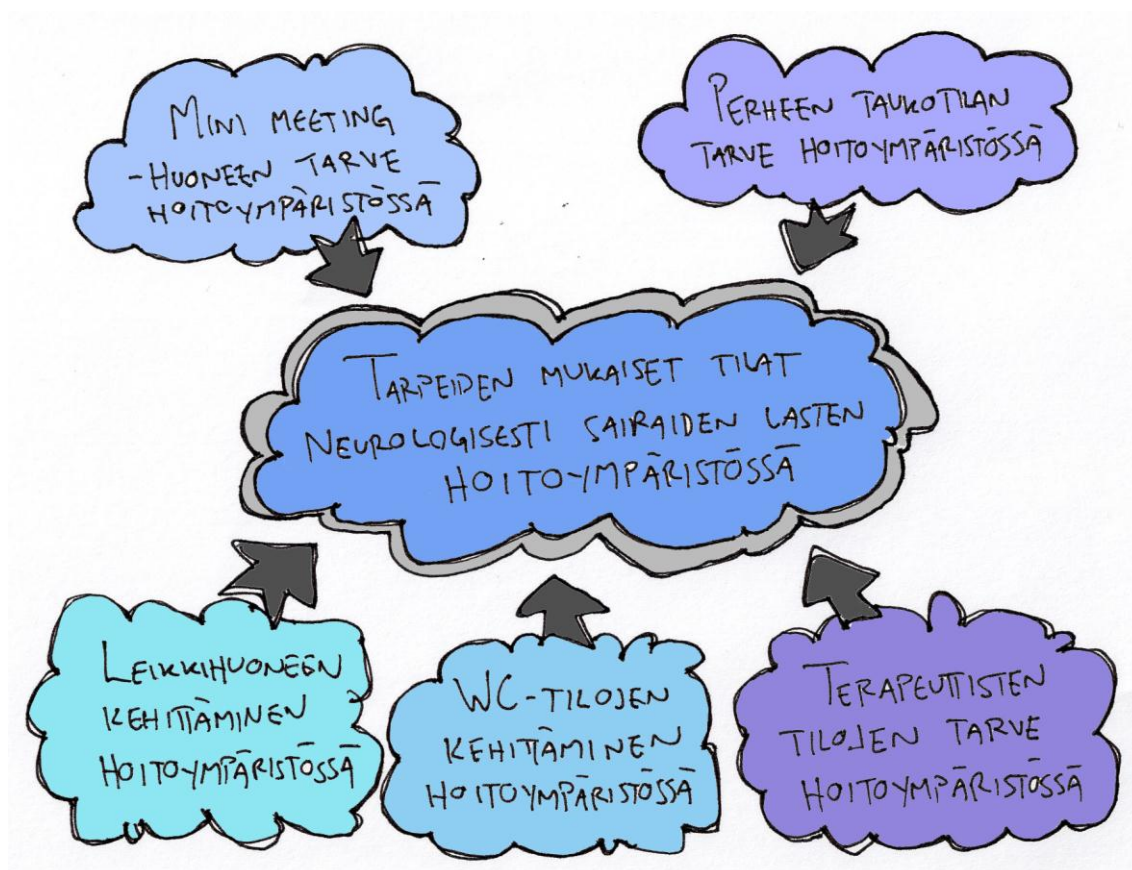 MINI MEETING
-HUONEEN TARVE
HOITOYMPÄRISTÖSSÄ
PERHEEN TAUKOTILAN
TARVE HOITOYMPÄRISTÖSSÄ
TARPEIDEN MUKAISET TILAT
NEUROLOGISESTI SAIRAIDEN LASTEN
HOITOYMPÄRISTÖSSÄ
LEIKKIHUONEEN
KEHITTÄMINEN
HOITOYMPÄRISTÖSSÄ
WC-TILOJEN
KEHITTÄMINEN
HOITOYMPÄRISTÖSSÄ
TERAPEUTTISTEN
TILOJEN TARVE
HOITOYMPÄRISTÖSSÄ